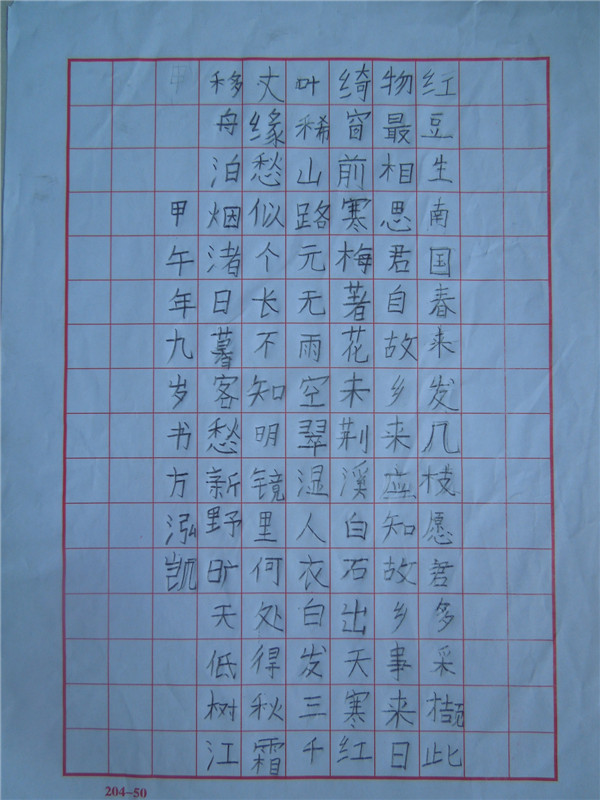 红豆生南国春来发几枝愿君多采撷此
物最相思君自故乡来应知故乡事来日
绮窗前寒梅著花未荆溪白石出天寒红
叶稀山路元无雨空翠湿人衣白发三千
丈缘愁似个长不知明镜里何处得秋霜
移舟泊烟渚日暮客愁新野旷天低树江
甲午年九岁书方泓凯
204-50